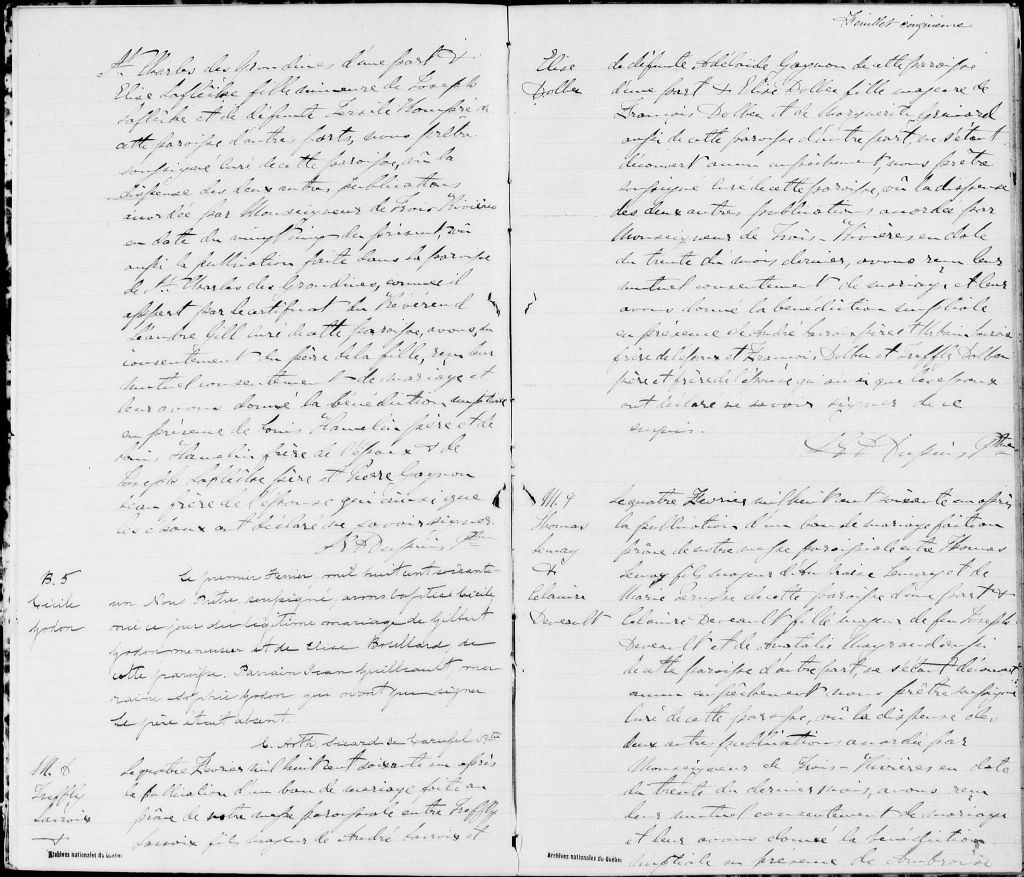 St. Charles des Grondines d'une part &
Elise Laflèche fille mineure de Joseph
Laflèche et de défunte
cette paroisse d'autre part, nous prêtre
soussigné curé de cette paroisse, vû la
dispense des deux autres publications
accordée par Monseigneur de Trois Rivières
en date du vingt cinq du présent, vû
aussi la publication faite dans la paroisse
de St. Charles des Grondines, comme il
appert par le certificat du Révérend
Léandre Gill curé de cette paroisse, avons, du
consentement du père de la fille, reçu leur
mutuel consentement de mariage et
leur avons donné la bénédiction nuptiale
en présence de Louis Hamelin père et de
Louis Hamelin frère de l'époux & de
Joseph Laflèche père et Pierre Gagnon
beau frère de l'épouse qui ainsi que
les époux ont déclaré ne savoir signer.
Dupuis Ptre
B. 5
Cécile
Godon
Le premier Fevrier, mil huit cent soixante
un Nous Prêtre soussigné, avons baptisé Cécile
née ce jour du légitime mariage de Gilbert
Godon menuisier et de Elise, de
cette paroisse. Parrain Jean Guilbeault, mar
raine Sophie Godon qui n'ont pu signer
Le père étant absent.
Sicard de Carufel Ptre
M.
Trefflé
Lacroix
&
Le quatre Fevrier mil huit cent soixante un après
la publication d'un ban de mariage faite au
prône de notre messe paroissiale entre Trefflé
Lacroix fils majeur de André Lacroix et
Archives nationales du Québec
Feuillet cinquième
Elise
Dolbec
de défunte Adélaide Gagnon de cette paroisse
d'une part & Elise Dolbec fille majeure de
François Dolbec et de Marguerite
aussi de cette paroisse d'autre part, ne s'étant
découvert aucun empêchement, nous prêtre
soussigné curé de cette paroisse, vû la dispense
des deux autres publications accordée par
Monseigneur de Trois-Rivières en date
du trente du mois dernier, avons reçu leur
mutuel consentement de mariage et leur
avons donné la bénédiction nuptiale
en présence de André Lacroix père et Lacroix
frère de l'époux et François Dolbec et Trefflé Dolbec
père et frère de l'épouse qui ainsi que les époux
ont déclaré ne savoir signer de ce
requis.
Dupuis Ptre
M. 4
Thomas
Lemay
&
Célanire
Deveault
Le quatre Fevrier mil huit cent soixante un après
la publication d'un ban de mariage faite au
prône de notre messe paroissiale entre Thomas
Lemay fils majeur d'Ambroise Lemay et de
Marie de cette paroisse d'une part &
Célanire Deveault fille majeur de feu Joseph
Deveault et de Natalie Mayrand aussi
de cette paroisse d'autre part, ne s'étant découvert
aucun empêchement nous prêtre soussigné
Curé de cette paroisse, vû la dispense des
deux autres publications accordée par
Monseigneur de Trois-Rivières en date
du trente du dernier mois, avons reçu
leur mutuel consentement de mariage
et leur avons donné la bénédiction
nuptiale en présence de Ambroise
Archives nationales du Québec